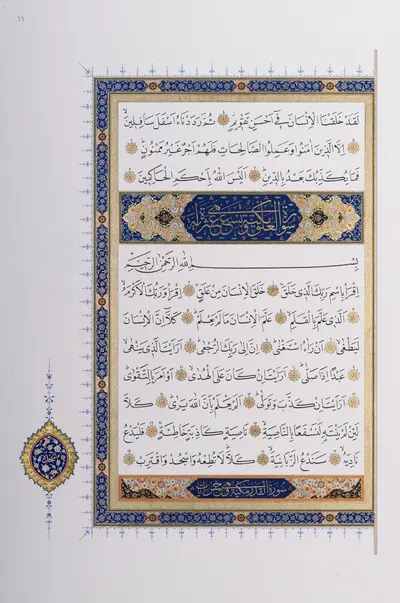 لَقَدْ خَلَقْنَا الْإِنْسَانَ فِي أَحْسَنِ تَقْوِيمٍ ثُمَّ رَدَدْنَاهُ أَسْفَلَ سَافِلِينَ
إِلَّا الَّذِينَ آمَنُوا وَعَمِلُوا الصَّالِحَاتِ فَلَهُمْ أَجْرٌ غَيْرُ مَمْنُونٍ
فَمَا يُكَذِّبُكَ بَعْدُ بِالدِّينِ أَلَيْسَ اللَّهُ بِأَحْكَمِ الْحَاكِمِينَ
سورة العلق مكية وهي تسع عشر آيات
بِسْمِ اللَّهِ الرَّحْمَنِ الرَّحِيمِ
اِقْرَأْ بِاسْمِ رَبِّكَ الَّذِي خَلَقَ خَلَقَ الْإِنْسَانَ مِنْ عَلَقٍ اِقْرَأْ وَرَبُّكَ الْأَكْرَمُ
الَّذِي عَلَّمَ بِالْقَلَمِ عَلَّمَ الْإِنْسَانَ مَا لَمْ يَعْلَمْ كَلَّا إِنَّ الْإِنْسَانَ
لَيَطْغَى أَنْ رَآهُ اسْتَغْنَى إِنَّ إِلَى رَبِّكَ الرُّجْعَى أَرَأَيْتَ الَّذِي يَنْهَى
عَبْدًا إِذَا صَلَّى أَرَأَيْتَ إِنْ كَانَ عَلَى الْهُدَى أَوْ أَمَرَ بِالتَّقْوَى
أَرَأَيْتَ إِنْ كَذَّبَ وَتَوَلَّى أَلَمْ يَعْلَمْ بِأَنَّ اللَّهَ يَرَى كَلَّا
لَئِنْ لَمْ يَنْتَهِ لَنَسْفَعًا بِالنَّاصِيَةِ نَاصِيَةٍ كَاذِبَةٍ خَاطِئَةٍ فَلْيَدْعُ
نَادِيَهُ سَنَدْعُ الزَّبَانِيَةَ كَلَّا لَا تُطِعْهُ وَاسْجُدْ وَاقْتَرِبْ
سورة القدر مكية وهي خمس آيات